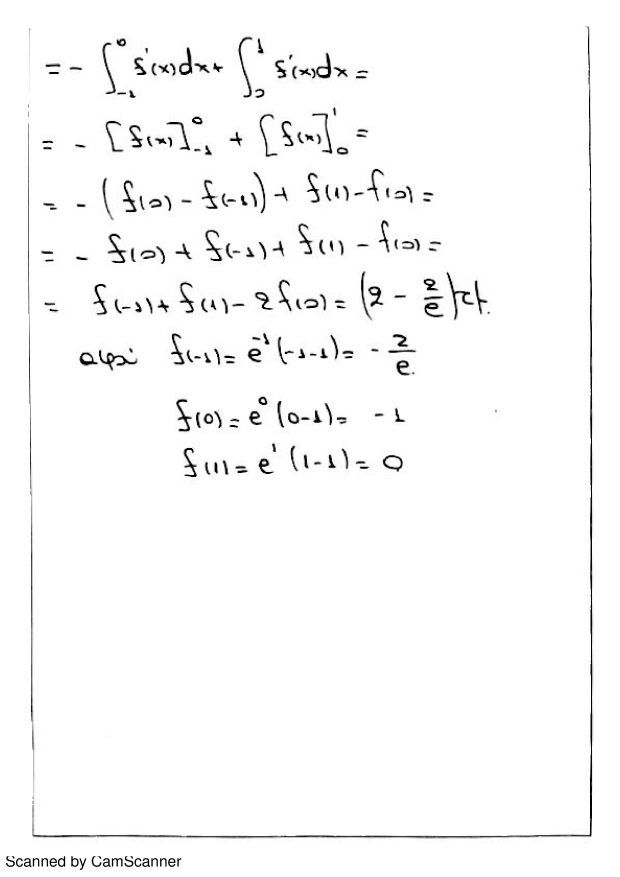 = - ∫₋₁⁰ f'(x)dx + ∫₀¹ f'(x)dx =
= - [f(x)]₋₁⁰ + [f(x)]₀¹ =
= - (f(0) - f(-1)) + f(1) - f(0) =
= - f(0) + f(-1) + f(1) - f(0) =
= f(-1) + f(1) - 2f(0) = (2 - 2/e) τ.μ.
αφού f(-1) = e⁻¹(-1-1) = - 2/e.
f(0) = e⁰(0-1) = -1
f(1) = e¹(1-1) = 0
Scanned by CamScanner